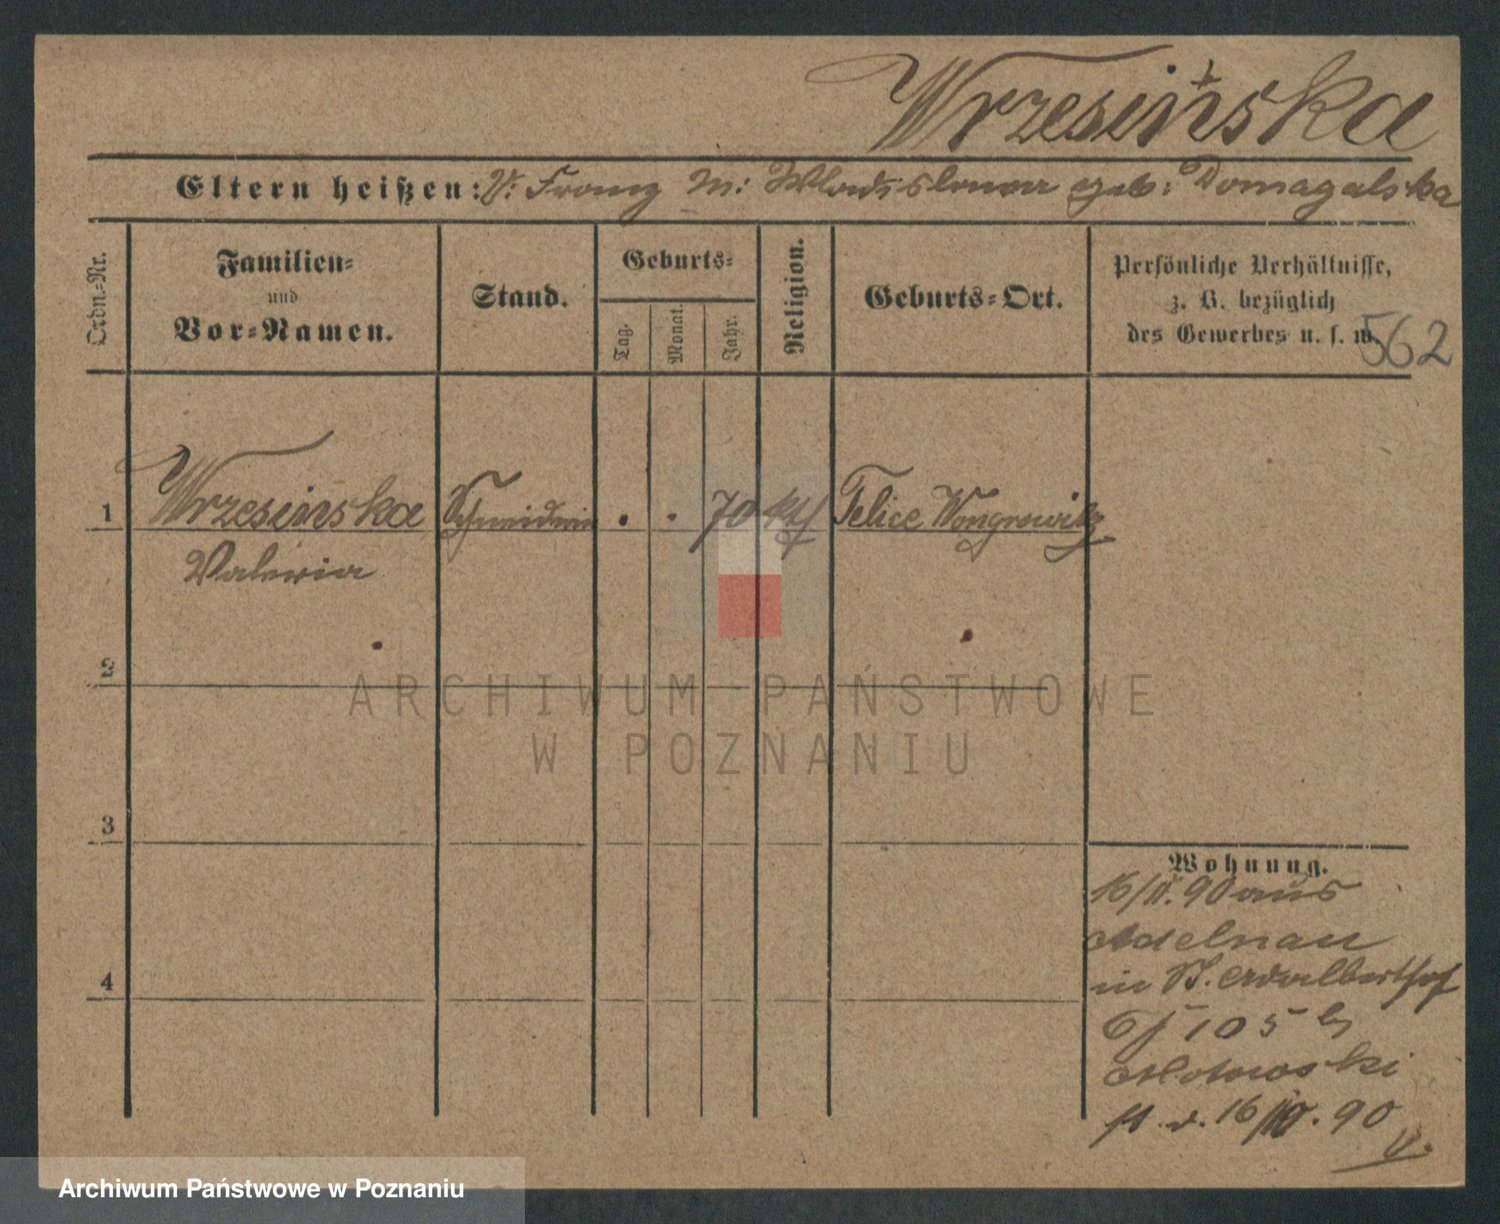 Wrzesińska
Eltern heißen: V: Franz M: Wladislawa geb. Domagalska
Ordn.-Nr.
Familien-
und
Vor-Namen.
Stand.
Geburts-
Tag.
Monat.
Jahr.
Religion.
Geburts-Ort.
Persönliche Verhältnisse,
z. B. bezüglich
des Gewerbes u. s. w.
562
1 Wrzesinska Schneiderin . . 70 kth Felice Wongrowitz
Valeria
2
3
4
Wohnung.
16/11. 90 aus
Adelnau
in St. Adalberthof
105 b
st. d. 16 . 90
ARCHIWUM PAŃSTWOWE
W POZNANIU
Archiwum Państwowe w Poznaniu